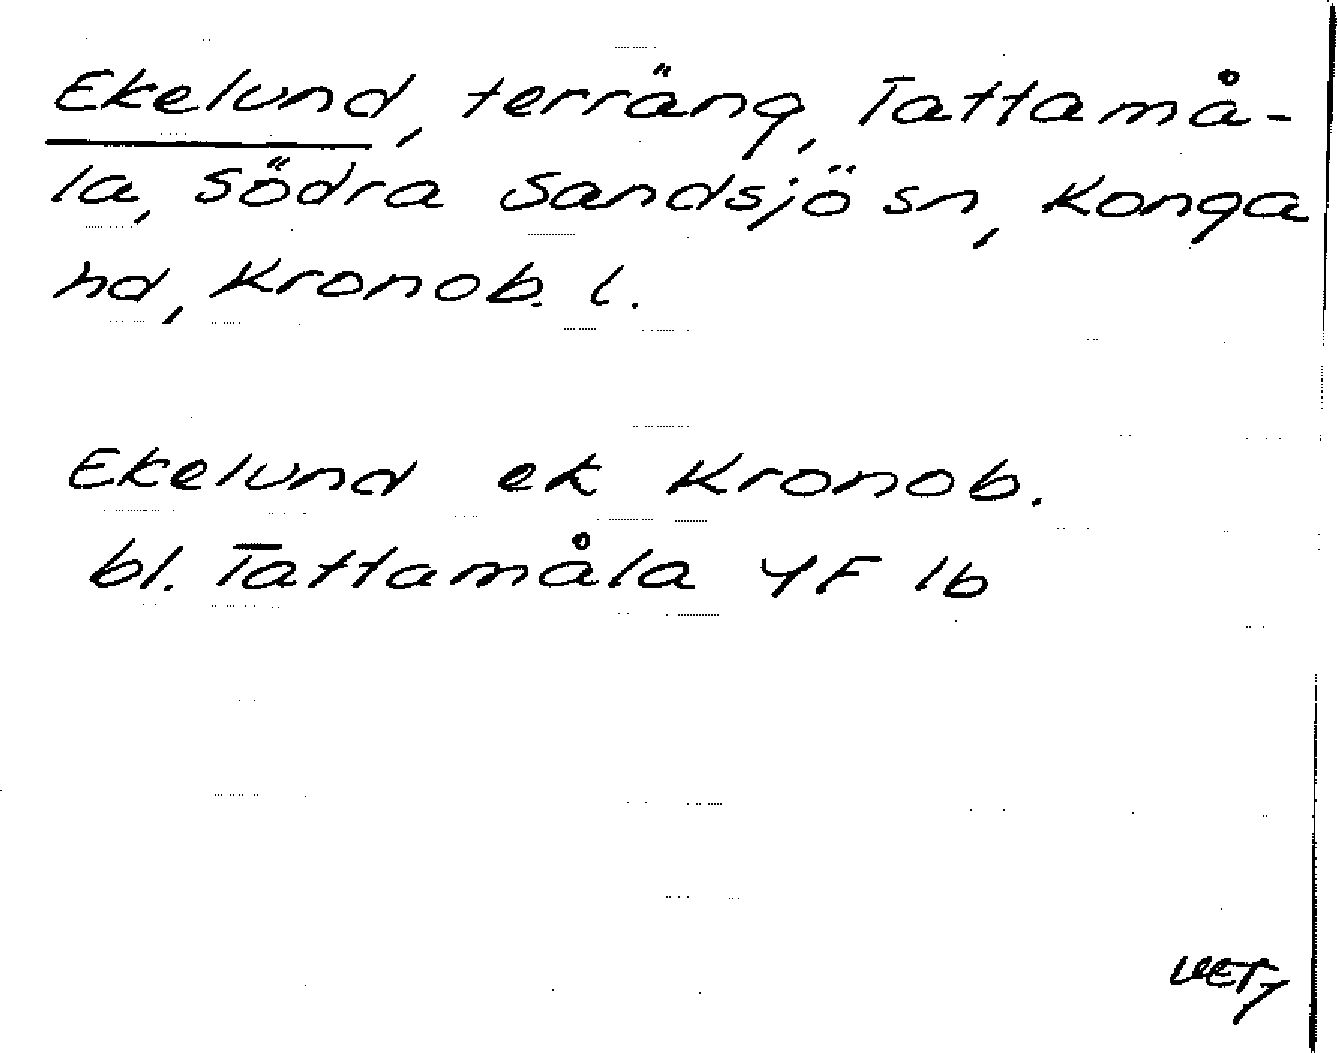 Ekelund, terräng, Tattamå-
la, Södra Sandsjö sn, Konga
hd, Kronob. l.
Ekelund ek Kronob.
bl. Tattamåla 4F 1b